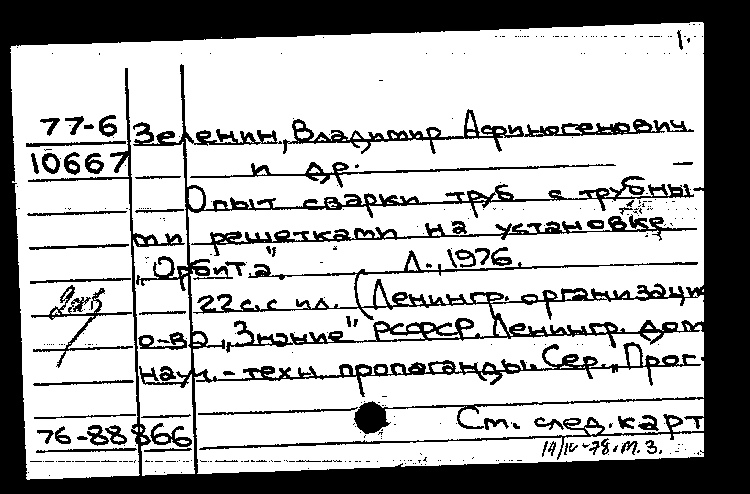 1.
77-6 Зеленин, Владимир Афиногенович
10667 и др.
Опыт сварки труб с трубны-
ми решетками на установке
„Орбита". Л., 1976.
22 с. с ил. (Ленингр. организаци
о-ва „Знание" РСФСР. Ленингр. дом
науч.-техн. пропаганды. Сер. „Прог-
См. след. карт
76-88866
14/IV-78. м. з.